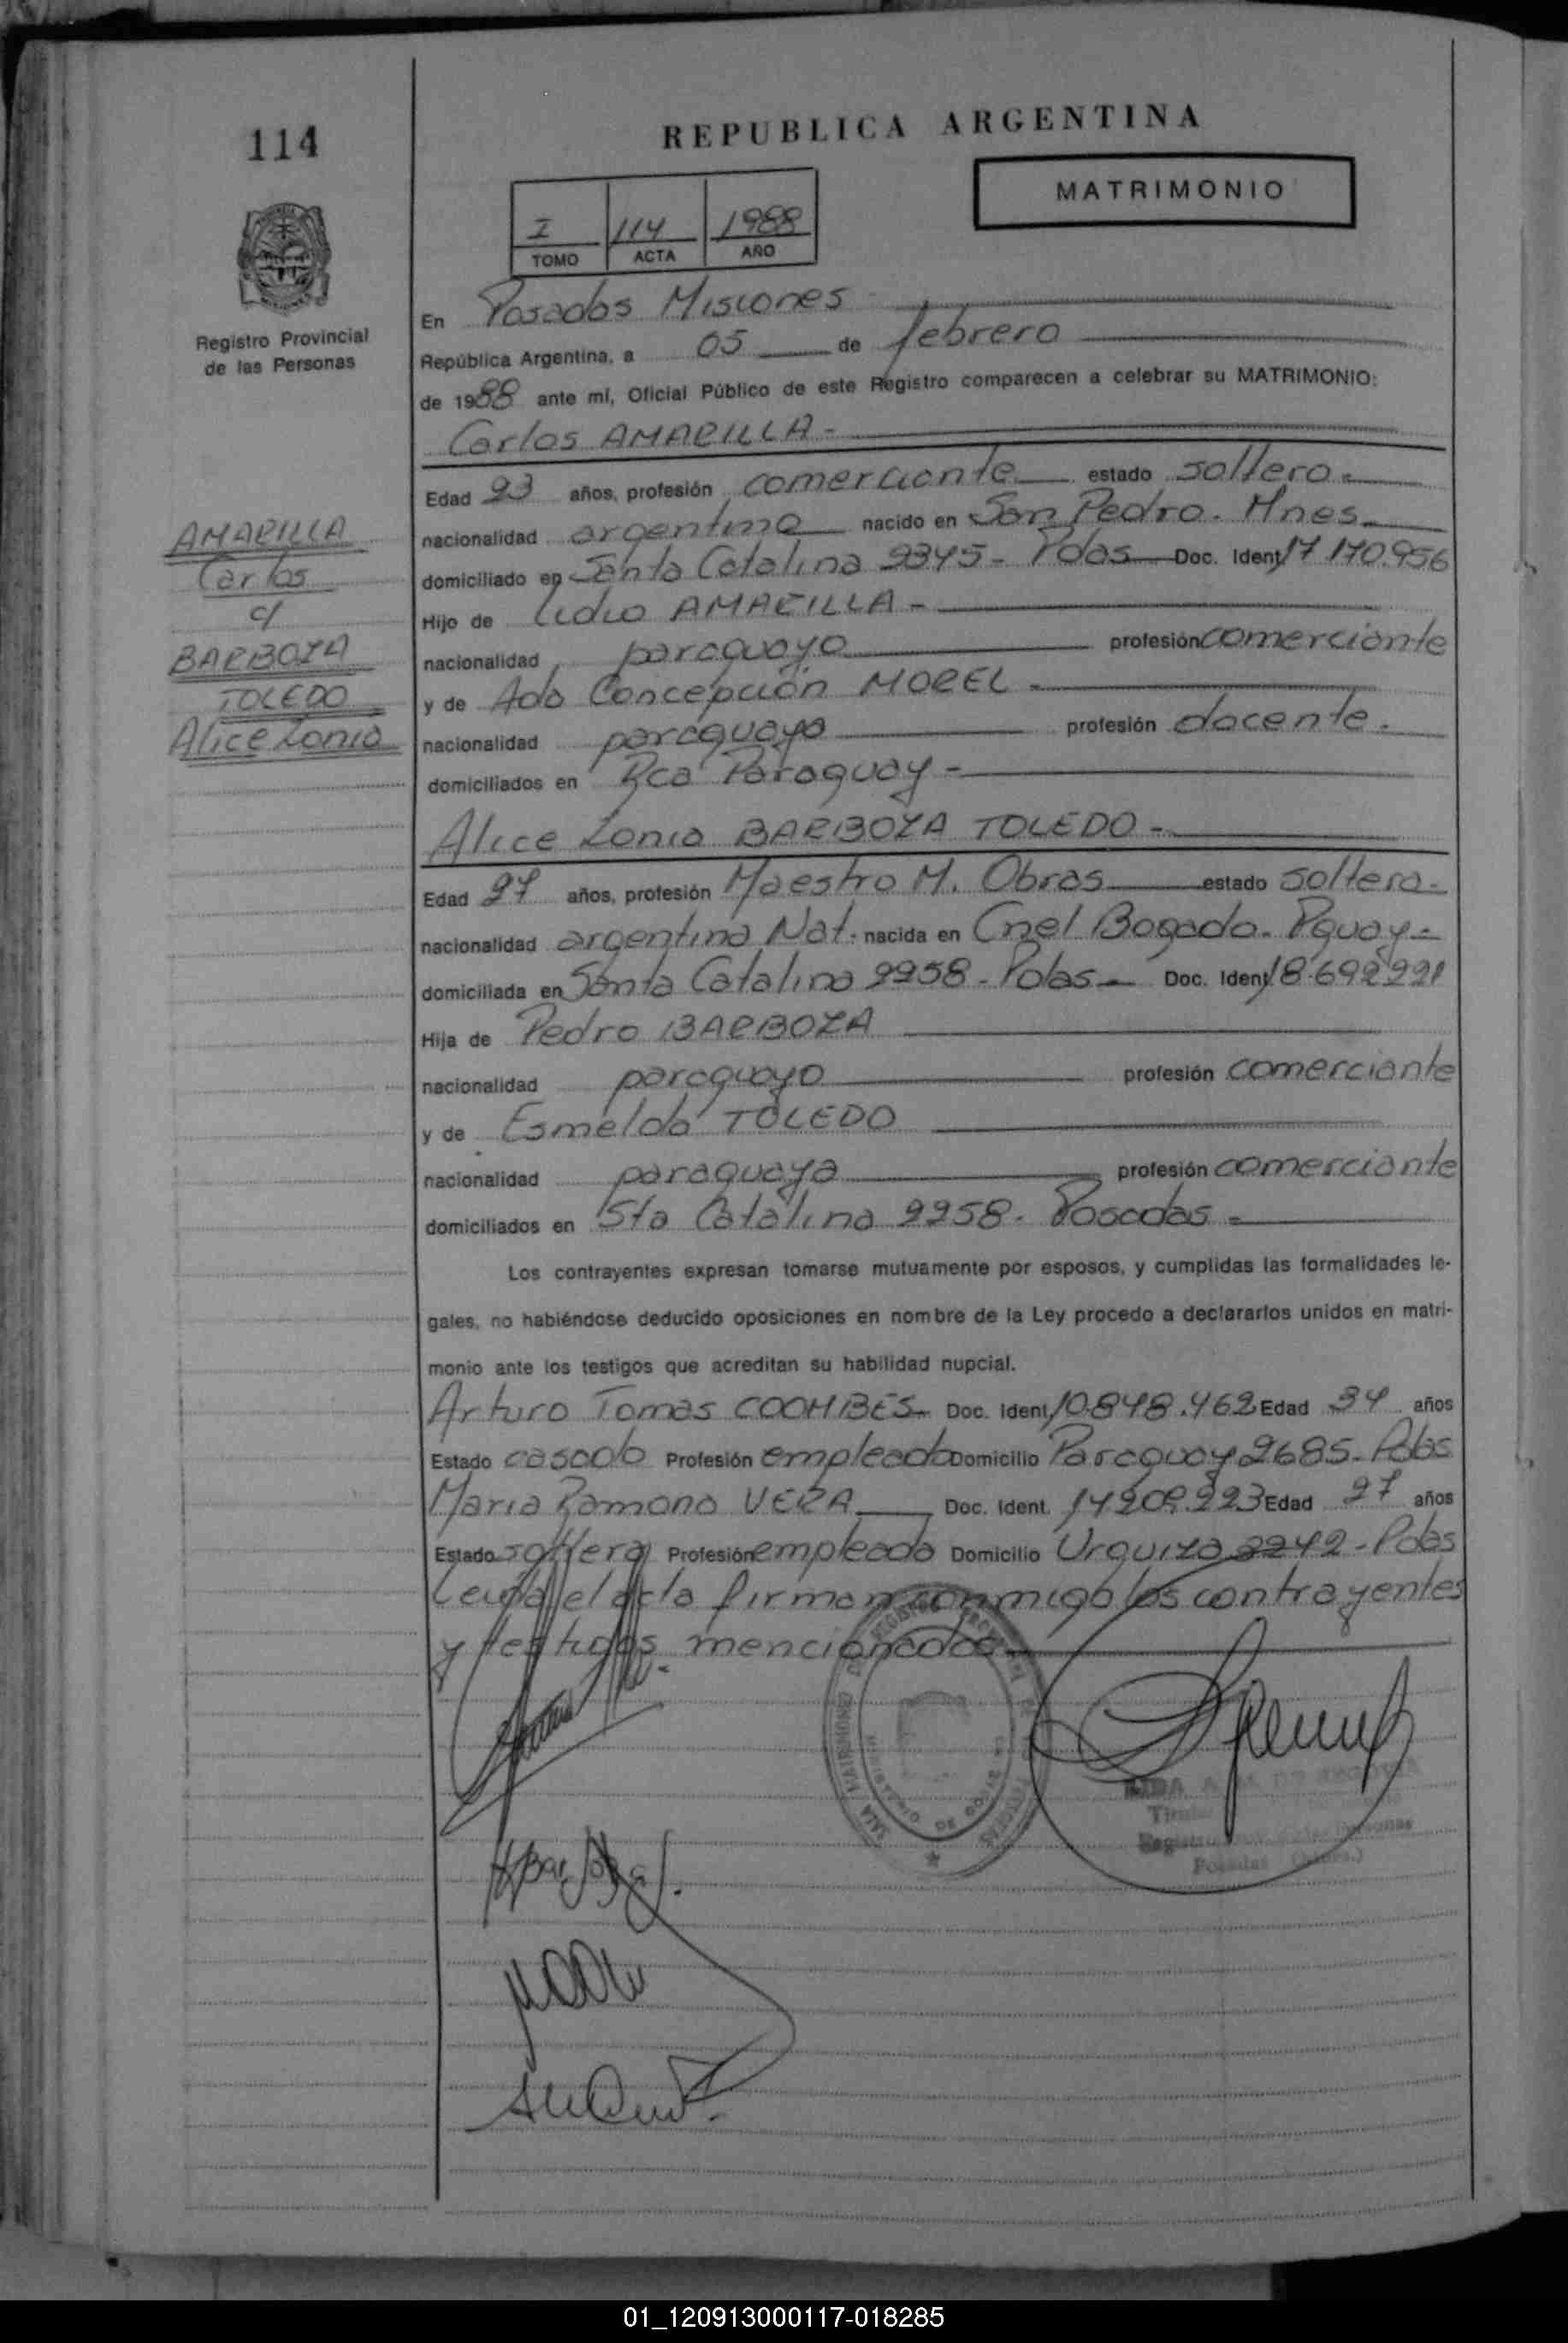 114
REPUBLICA ARGENTINA
MATRIMONIO
I 114 1988
TOMO ACTA AÑO
Registro Provincial
de las Personas
En Posadas Misiones
República Argentina, a 05 de febrero
de 1988 ante mí, Oficial Público de este Registro comparecen a celebrar su MATRIMONIO:
Carlos AMARILLA -
Edad 23 años, profesión comerciante estado soltero.
nacionalidad argentina nacido en San Pedro. Mnes
domiciliado en Santa Catalina 2345 - Pdas Doc. Ident. 17 170.956
Hijo de Lidio AMARILLA -
nacionalidad paraguayo profesión comerciante
y de Ada Concepción MOREL -
nacionalidad paraguaya profesión docente.
domiciliados en Rca Paraguay -
AMARILLA
Carlos
c/
BARBOZA
TOLEDO
Alice Zonia
Alice Zonia BARBOZA TOLEDO -
Edad 27 años, profesión Maestro M. Obras estado soltera -
nacionalidad argentina Nat. nacida en Cnel Bogado. Pguay -
domiciliada en Santa Catalina 2258 - Pdas - Doc. Ident. 18.692221
Hija de Pedro BARBOZA
nacionalidad paraguayo profesión comerciante
y de Esmelda TOLEDO
nacionalidad paraguaya profesión comerciante
domiciliados en Sta Catalina 2258 - Posadas -
Los contrayentes expresan tomarse mutuamente por esposos, y cumplidas las formalidades le-
gales, no habiéndose deducido oposiciones en nombre de la Ley procedo a declararlos unidos en matri-
monio ante los testigos que acreditan su habilidad nupcial.
Arturo Tomas COOMBES - Doc. Ident. 10.848.462 Edad 34 años
Estado casado Profesión empleado Domicilio Paraguay 2685 - Pdas
Maria Ramona VERA Doc. Ident. 14209.223 Edad 27 años
Estado soltera Profesión empleada Domicilio Urquiza 2242 - Pdas
Leida el acta firman conmigo los contrayentes
y testigos mencionados
01_120913000117-018285